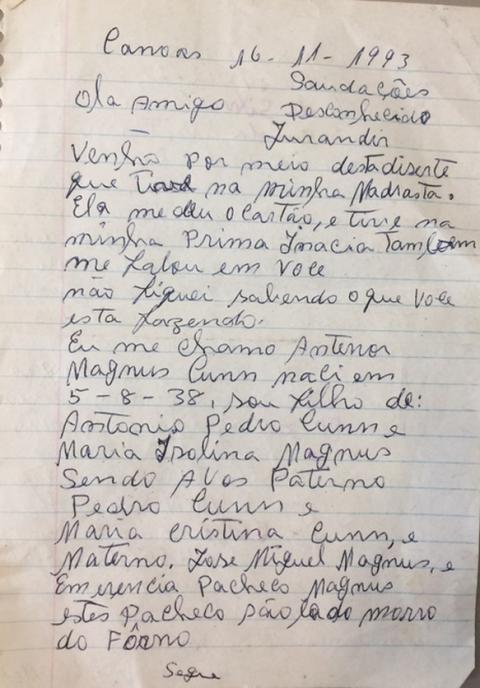 Canoas 16-11-1993
Saudações
Ola Amigo Desconhecido
Jurandir
Venhô por meio desta diserte
que tive na minha Madrasta.
Ela me deu o cartão, e tive na
minha Prima Inacia Tambem
me falou em voce
não fiquei sabendo o que voce
esta fazendo.
Eu me chamo Antenor
Magnus Cunn naci em
5-8-38, sou filho de:
Antonio Pedro Cunn e
Maria Isolina Magnus
Sendo Avos Paterno
Pedro Cunn e
Maria Cristina Cunn, e
Materno. Jose Miguel Magnus, e
Emerencia Pacheco Magnus
estes Pacheco são la do morro
do Fôrno
Segue